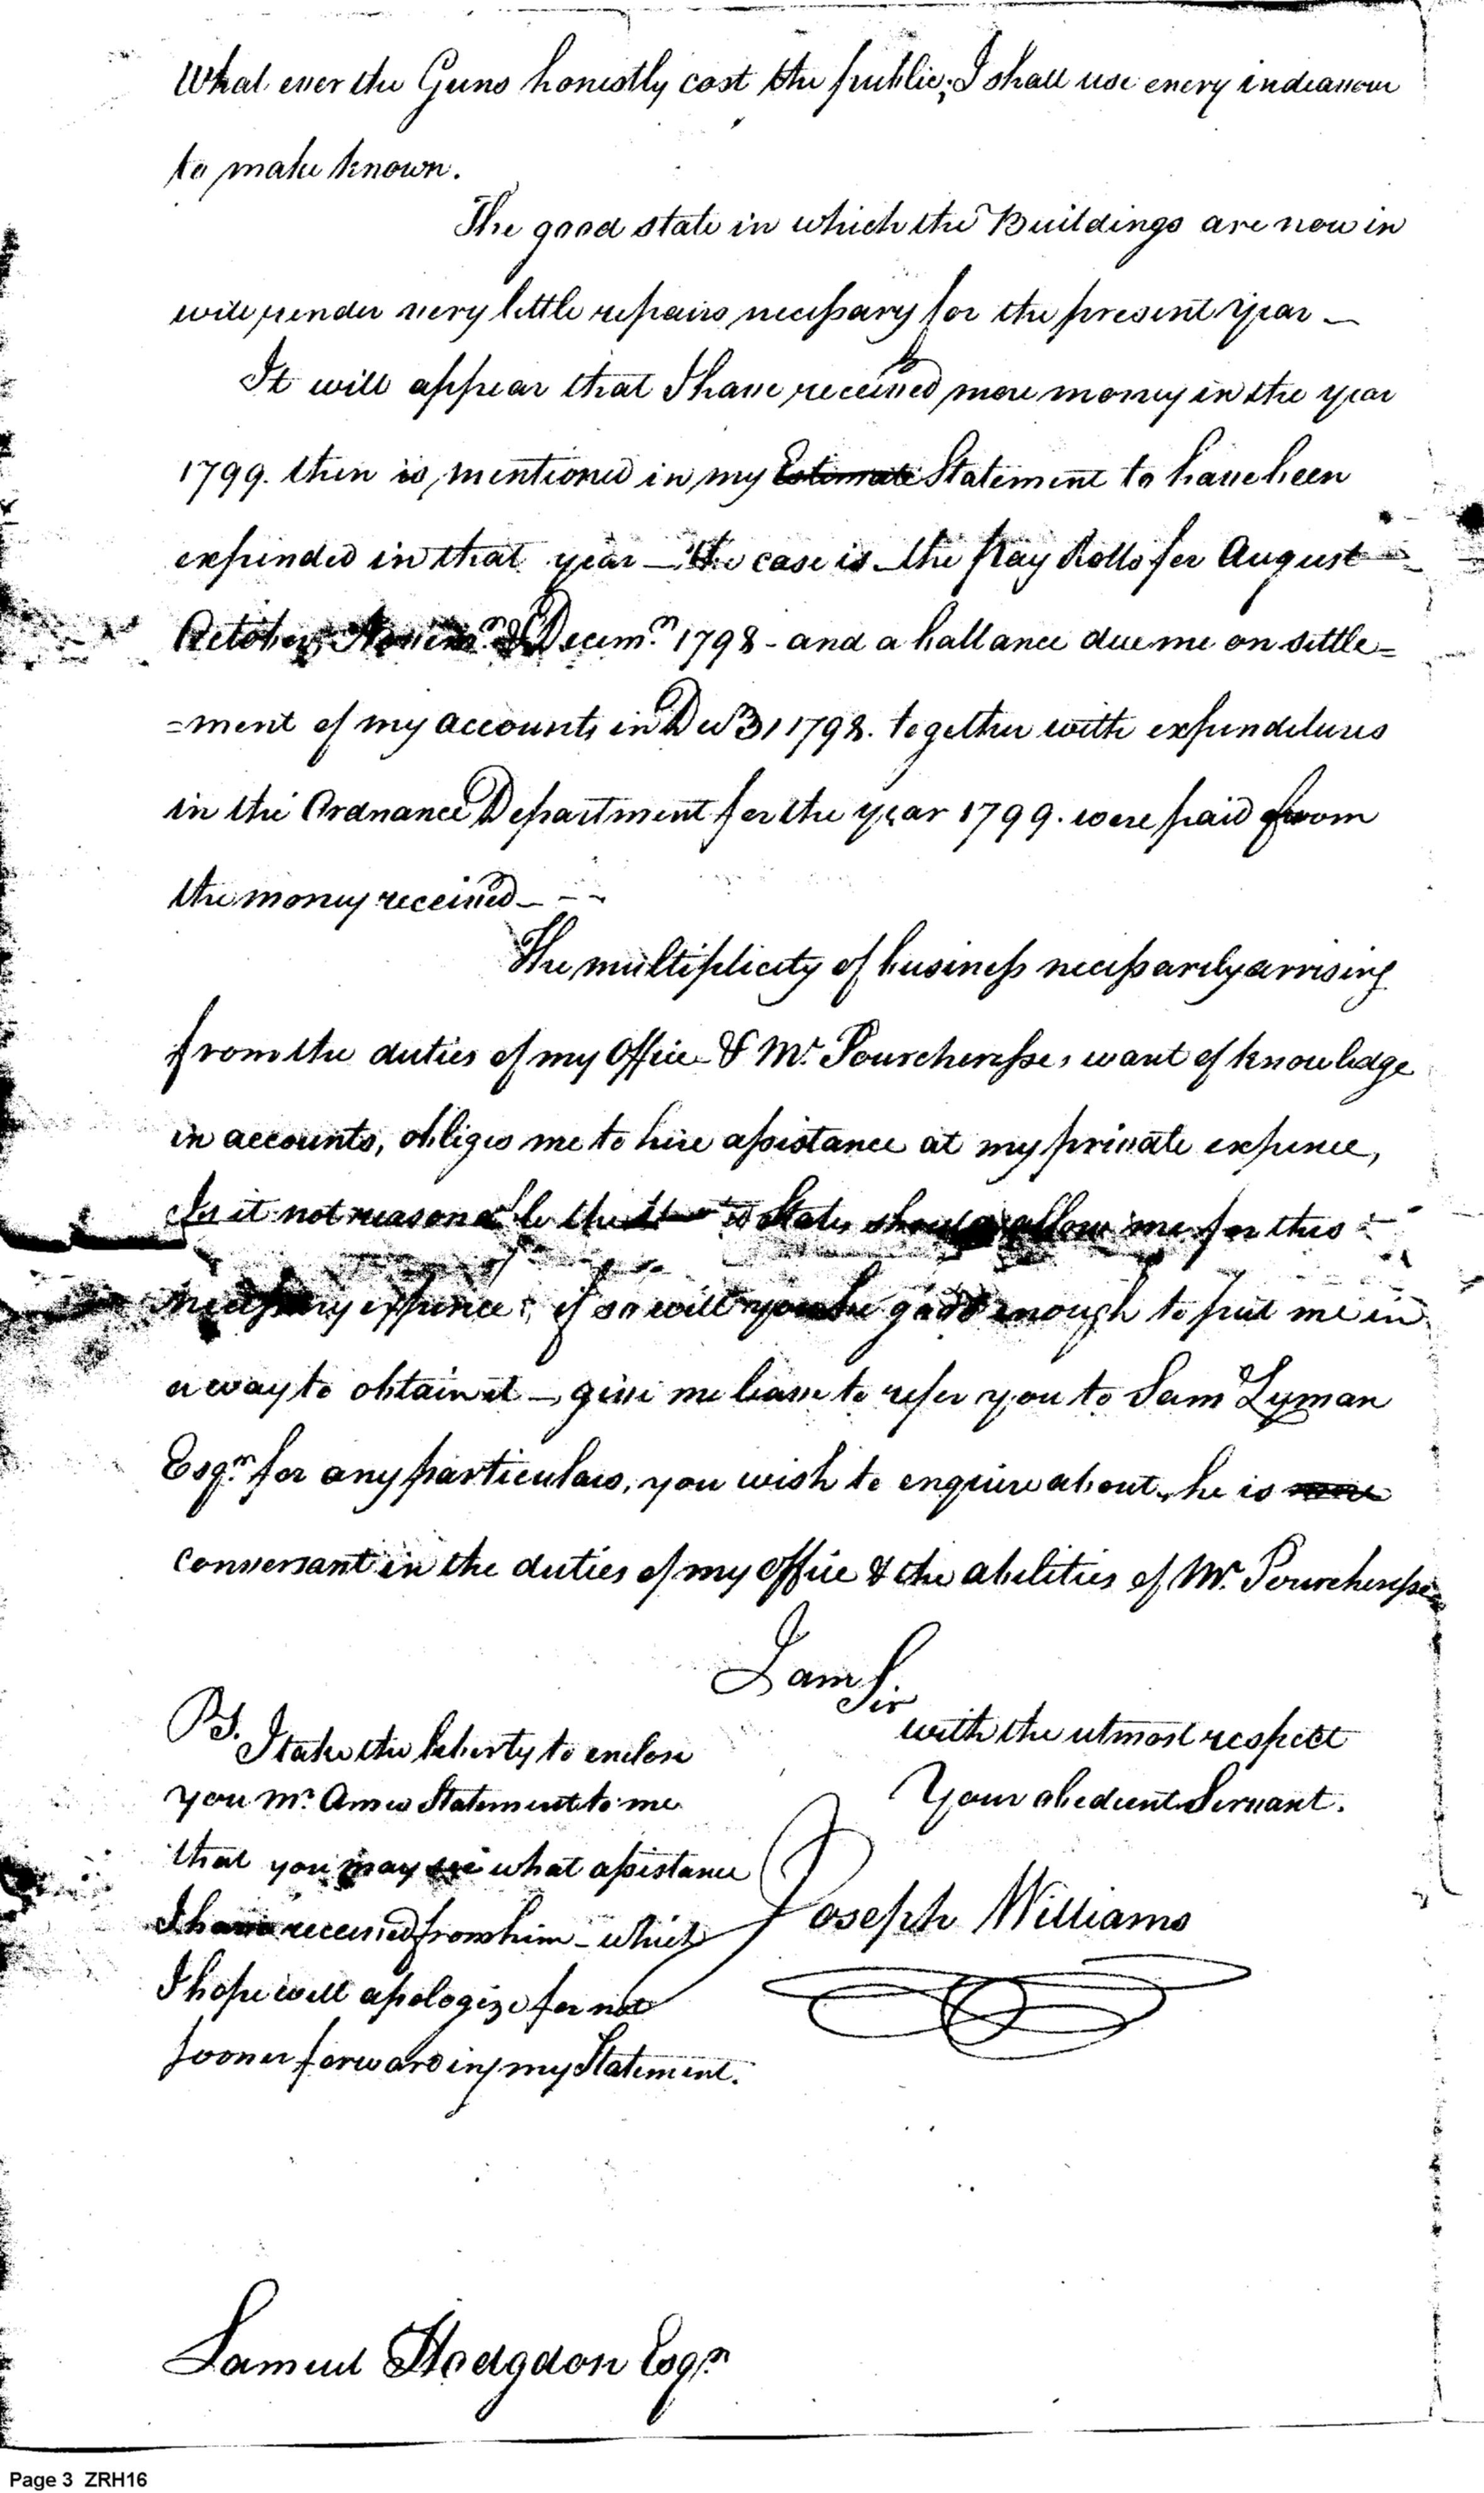 What ever the Guns honestly cost the public; I shall use every indeavour
to make known.
The good state in which the Buildings are now in
will render very little repairs necessary for the present year —
It will appear that I have received more money in the year
1799. then is mentioned in my Estimate Statement to have been
expended in that year — the case is the Pay Rolls for August
October, Novemr. & Decemr. 1798 - and a ballance due me on settle=
=ment of my accounts in Decr 31 1798. together with expenditures
in the Ordnance Department for the year 1799. were paid from
the money received - - -
The multiplicity of business necessaryly arrising
from the duties of my Office & Mr. Pourcheresse, want of knowledge
in accounts, obliges me to hire assistance at my private expence,
Is it not reasonable the States should allow me for this
necessary expence; if so will you be good enough to put me in
a way to obtain it — give me leave to refer you to Sam Lyman
Esqr. for any particulars, you wish to enquire about, he is
conversant in the duties of my office & the abilities of Mr. Pourcheresse
I am Sir
with the utmost respect
Your obedient Servant.
Joseph Williams
PS. I take the liberty to enclose
you Mr. Ames Statement to me
that you may see what assistance
I have received from him - which
I hope will apologize for not
sooner forwarding my Statement.
Samuel Hodgdon Esqr.
Page 3 ZRH16